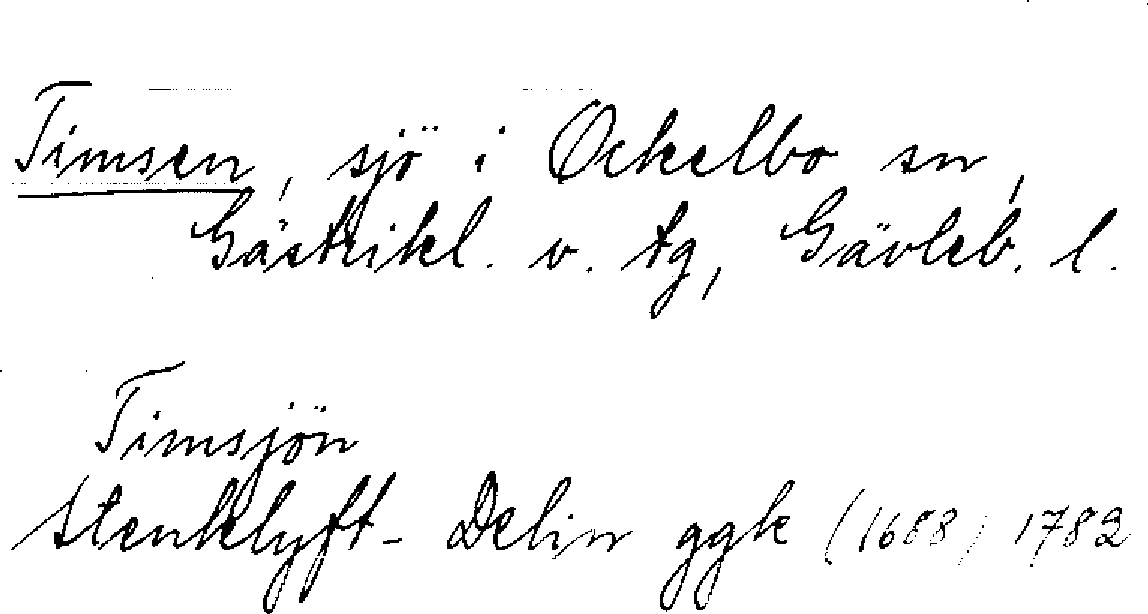 Timsen, sjö i Ockelbo sn,
Gästrikl. v. tg, Gävleb. l.
Timsjön
Stenklyft- Delin ggk (1688) 1782